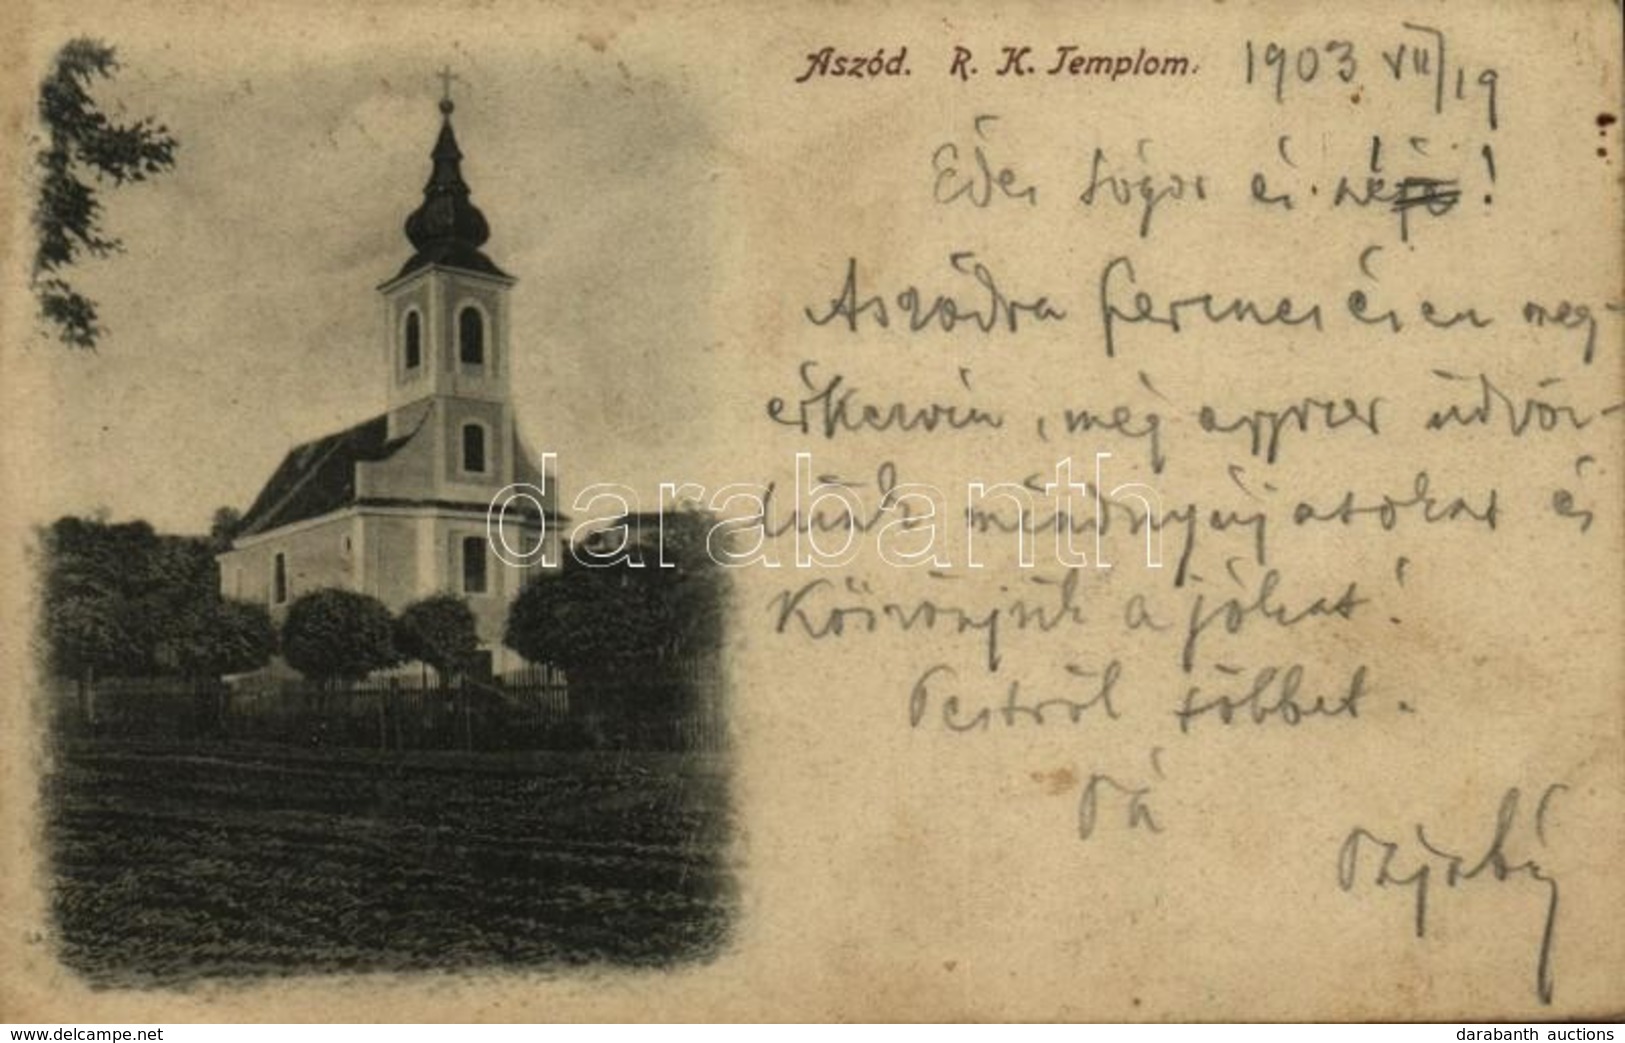 Aszód. R. K. Templom.
1903 VII/19
Édes sógor és !
Aszódra szerencsésen meg-
érkezvén, még egyszer üdvöz-
lünk mindnyájatokat és
Köszönjük a jókat!
Pestről többet.
Pá
darabanth
www.hipostcard.com
darabanth auctions